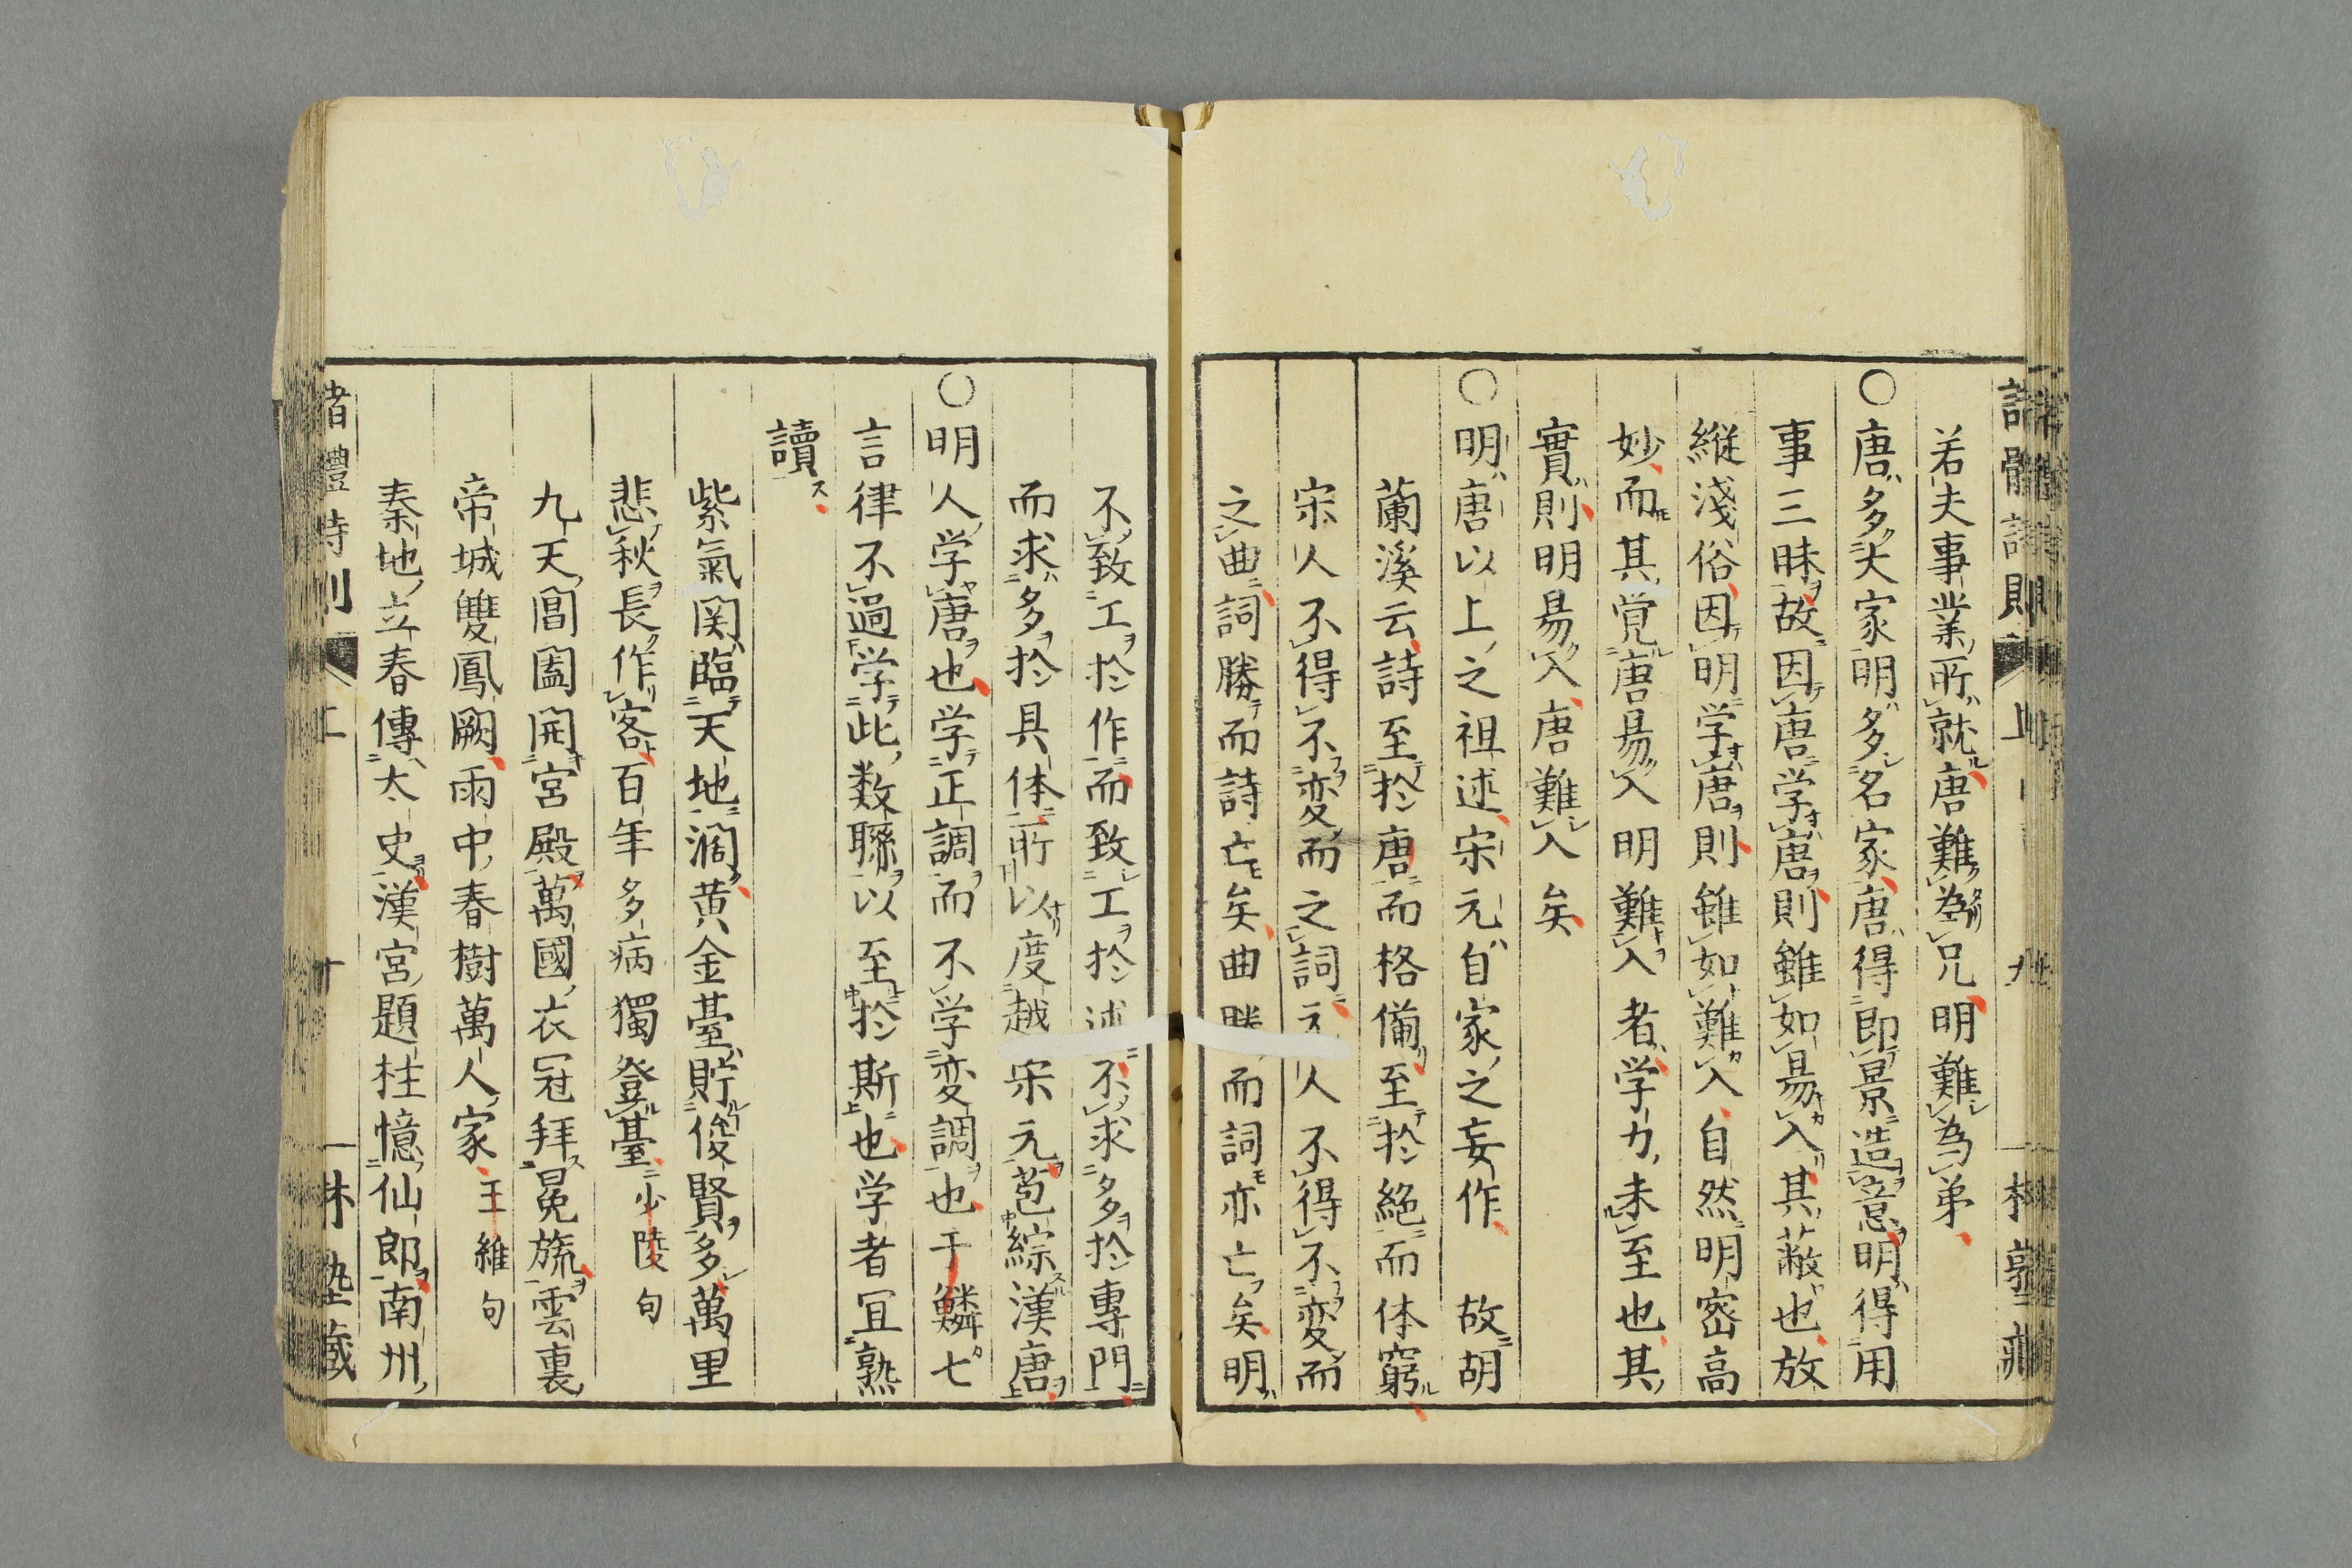 若夫事業所就唐難為兄明難為弟
○唐多大家明多名家唐得即景造意明得用
事三昧故因唐学唐則雖如易入其蔽也放
縦淺俗因明学唐則雖如難入自然明密高
妙而其覚唐易入明難入者学力未至也其
實則明易入唐難入矣
○明唐以上之祖述宋元自家之妄作故胡
蘭溪云詩至於唐而格備至於絶而体窮
宋人不得不変而之詞元人不得不変而
之曲詞勝而詩亡矣曲勝而詞亦亡矣明
不致工於作而致工於述不求多於專門
而求多於具体所以度越宋元苞綜漢唐
○明人学唐也学正調而不学変調也于鱗七
言律不過学此数聯以至於斯也学者冝熟
讀
紫氣関臨天地濶黄金臺貯俊賢多萬里
悲秋長作客百年多病獨登臺少陵句
九天閶闔開宮殿萬國衣冠拜冕旒雲裏
帝城雙鳳闕雨中春樹萬人家王維句
秦地立春傳太史漢宮題柱憶仙郎南州